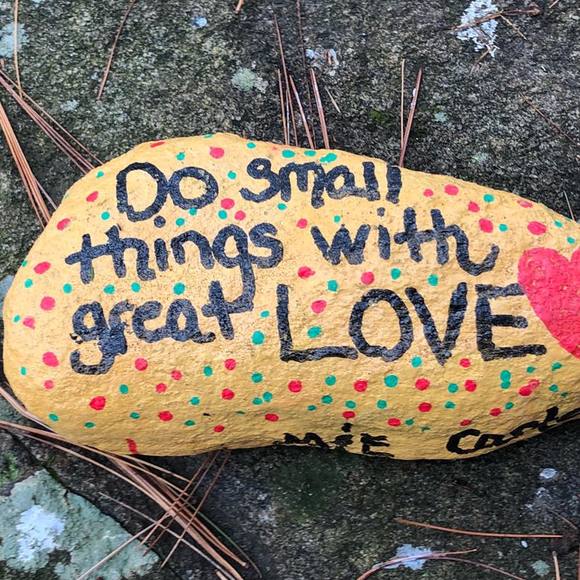 Do small
things with
great LOVE